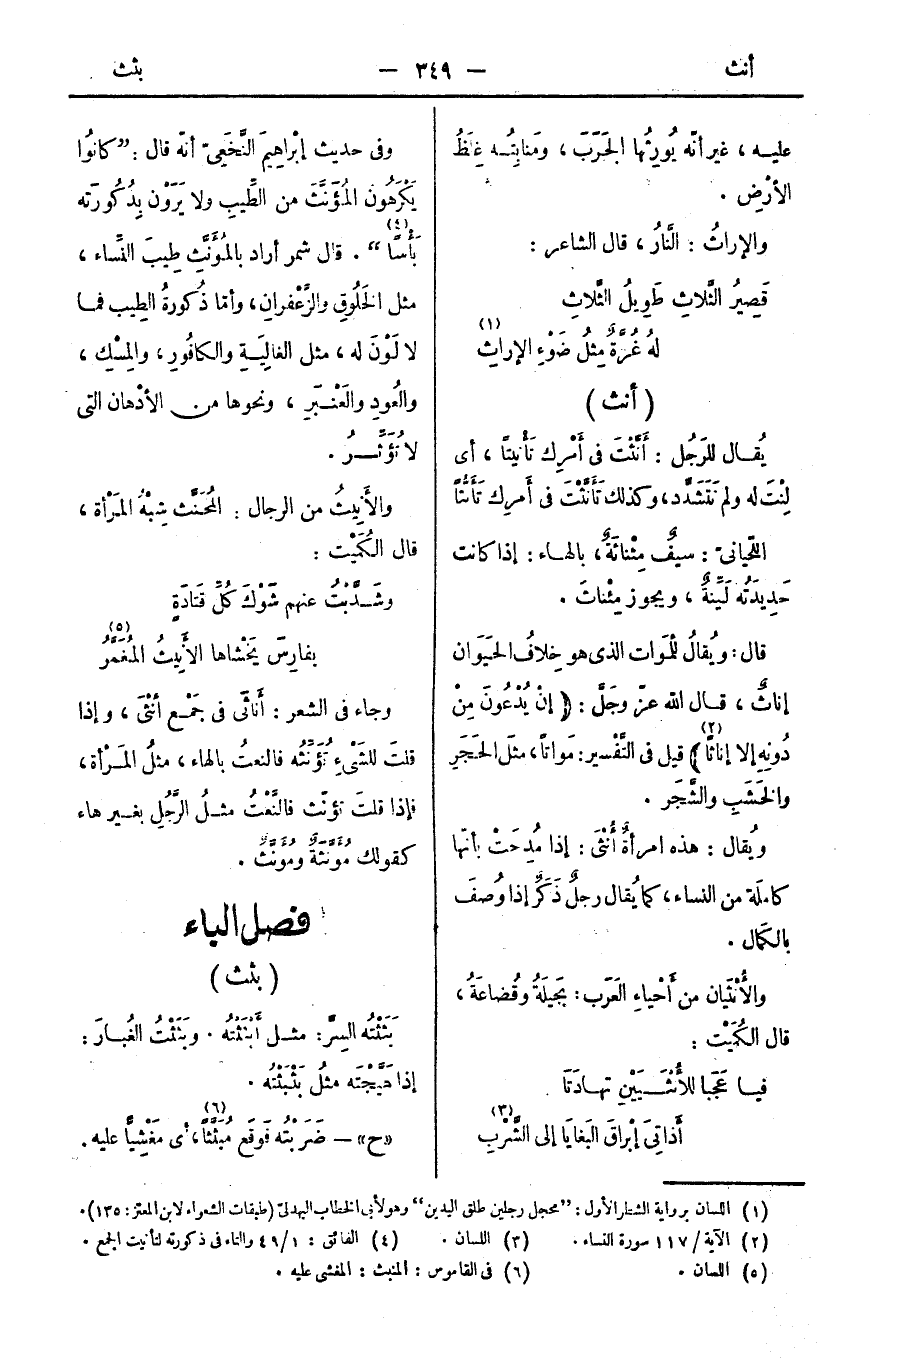 أنث
— ٣٤٩ —
بثث
عليه ، غير أنّه يُورِثُها الجَرَبَ ، ومَنابِتُه غِلَظُ
الأرْضِ .
والإراثُ : النَّارُ ، قال الشاعر :
قَصِيرُ الثَّلاثِ طَوِيلُ الثَّلاثِ
لهُ غُرَّةٌ مِثلُ ضَوْءِ الإراثِ (١)
( أنث )
يُقـال للرَجُل : أَنَّثْتَ فى أَمْرِك تَأْنيثًا ، أى
لِنْتَ له ولم تَتَشَدَّد، وكذلك تَأَنَّثْتَ فى أَمرِك تَأَنُّثًا
اللّحيانىّ : سيفٌ مِئْناثَةٌ، بالهـاء : إذا كانت
حَدِيدَتُه لَيِّنَةً ، ويجوز مِئْناثَ .
قال: ويُقالُ للْمَوات الذى هو خِلافُ الحَيَوان
إناثٌ ، قـال الله عزّ وجَلَّ : ﴿ إنْ يُدْعُونَ مِنْ
دُونِه إلا إناثًا ﴾ (٢) قيل فى التَّفْسير: مَواتًا، مثلَ الحَجَرِ
والخَشَبِ والشَّجَر .
ويُقال : هذه امرأةٌ أُنْثَى : إذا مُدِحَتْ بأنّها
كاملَة من النساء، كما يُقال رجلٌ ذَكَرٌ إذا وُصفَ
بالكَمال .
والأُنْثَيان من أَحْياءِ العَرَب : بَجيلَةُ وقُضاعَةُ ،
قال الكُمَيْت :
فيـا عَجَبا للأُنْثَـيَيْنِ تهادَتَا
أَذاتِىَ إبْراقَ البَغايَا إلى الشَّرْبِ (٣)
وفى حديث إبْراهِيمَ النَّخَعِىّ أنه قال : ”كانُوا
يَكْرَهُون المُؤَنَّثَ من الطِّيبِ ولا يَرَوْن بِذُكُورَتِه
بَأْسًا “ (٤) . قال شمر أراد بالمُؤَنَّثِ طِيبَ النِّساء ،
مثل الخَلُوقِ والزَّعْفرانِ، وأمّا ذُكُورةُ الطِيب فمـا
لا لَوْنَ له ، مثل الغالِيَةِ والكافُورِ، والمِسْكِ ،
والعُودِ والعَنْبَرِ ، ونحوها من الأدْهان التى
لا تُؤَثِّـرُ .
والأَنِيثُ من الرجال : المُخَنَّث شِبْهُ المَرْأة ،
قال الكُمَيْت :
وشَـذَّبْتُ عنهم شَوْكَ كُلِّ قَتَادَةٍ
بفارِسَ يَخْشاها الأَنِيثُ المُغَمَّرُ (٥)
وجاء فى الشعر : أَناثَى فى جَمْع أنْثَى ، وإذا
قلتَ للشَىْءِ تُؤَنِّثُه فالنعتُ بالهاء ، مثلُ المَرْأة،
فإذا قلتَ تُؤنّث فالنَّعْتُ مثـلُ الرَّجُلِ بغـير هاء
كقولك مُؤنَّثَةٌ ومُؤنَّثٌ .
فصل الباء
( بثث )
بَثَثْتُه السِرَّ: مثـل أَبْثَثْتُه . وبَثَثْتُ الغُبارَ :
إذا هَيَّجْتَه مثلُ بَثْبَثْتُه .
«ح» – ضَرَبْتُه فَوقَع مُبْثَثًّا (٦)، أى مَغْشِيًّا عليه .
(١) اللسان برواية الشطر الأول : ”محجل رجلين طلق اليدين“ وهو لأبى الخطاب البهدلىّ (طبقات الشعراء لابن المعتز : ١٣٥).
(٢) الآية / ١١٧ سورة النساء . (٣) اللسان . (٤) الفائق : ٤٩/١ والتاء فى ذكورته لتأنيث الجمع .
(٥) اللسان . (٦) فى القاموس : المنبث : المغشى عليه .